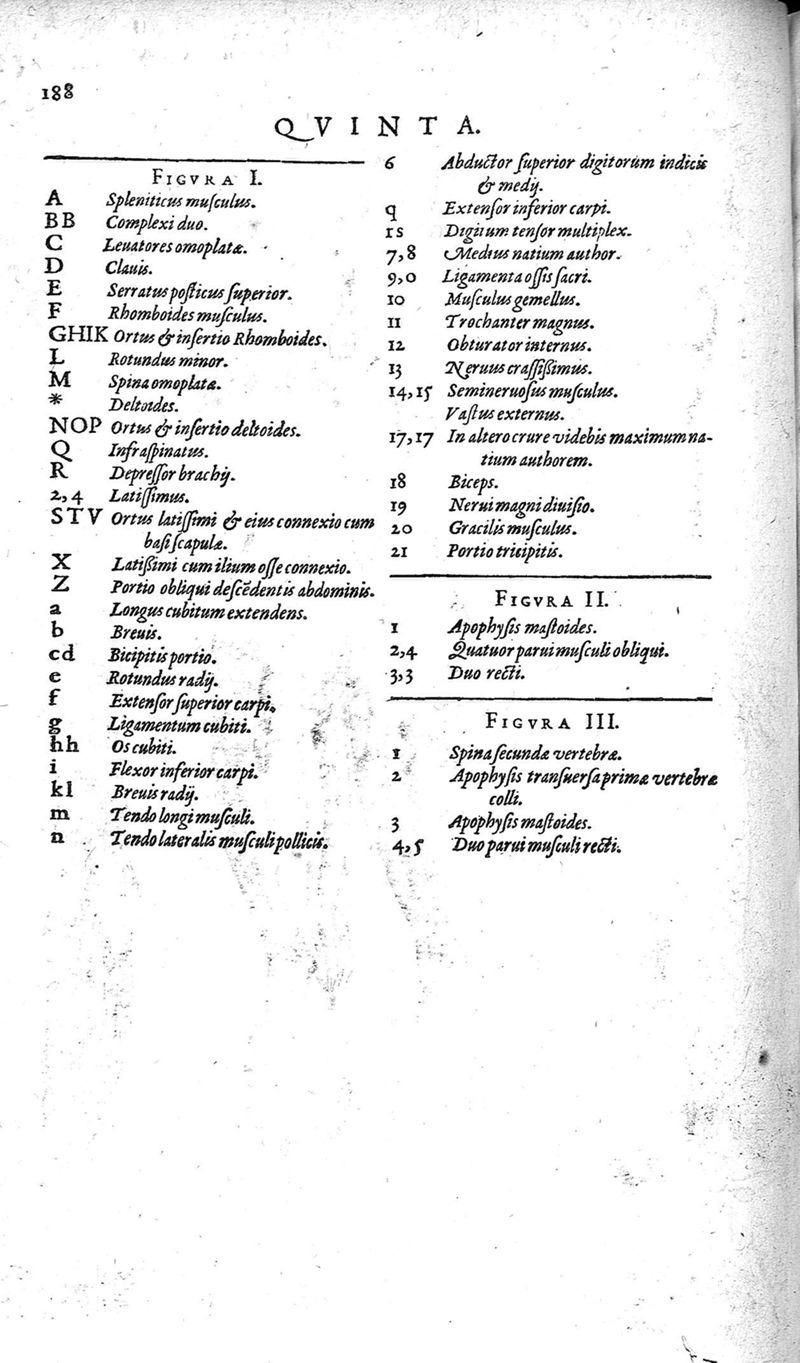 188
QVINTA.
FIGVRA I.
A Spleniticus muſculus.
BB Complexi duo.
C Leuatores omoplatæ.
D Clauis.
E Serratus poſticus ſuperior.
F Rhomboides muſculus.
GHIK Ortus & inſertio Rhomboides.
L Rotundus minor.
M Spina omoplatæ.
* Deltoides.
NOP Ortus & inſertio deltoides.
Q Infraſpinatus.
R Depreſſor brachij.
2,4 Latiſſimus.
STV Ortus latiſſimi & eius connexio cum
baſi ſcapulæ.
X Latiſſimi cum ilium oſſe connexio.
Z Portio obliqui deſcēdentis abdominis.
a Longus cubitum extendens.
b Breuis.
cd Bicipitis portio.
e Rotundus radij.
f Extenſor ſuperior carpi.
g Ligamentum cubiti.
hh Os cubiti.
i Flexor inferior carpi.
kl Breuis radij.
m Tendo longi muſculi.
n Tendo lateralis muſculi pollicis.
6 Abductor ſuperior digitorum indicis
& medij.
q Extenſor inferior carpi.
rs Digitum tenſor multiplex.
7,8 Medius natium author.
9,0 Ligamenta oſſis ſacri.
10 Muſculus gemellus.
11 Trochanter magnus.
12 Obturator internus.
13 Neruus craſſiſſimus.
14,15 Semineruoſus muſculus.
Vaſtus externus.
17,17 In altero crure videbis maximum na-
tium authorem.
18 Biceps.
19 Nerui magni diuiſio.
20 Gracilis muſculus.
21 Portio tricipitis.
FIGVRA II.
1 Apophyſis maſtoides.
2,4 Quatuor parui muſculi obliqui.
3,3 Duo recti.
FIGVRA III.
1 Spina ſecundæ vertebræ.
2 Apophyſis tranſuerſa primæ vertebræ
colli.
3 Apophyſis maſtoides.
4,5 Duo parui muſculi recti.